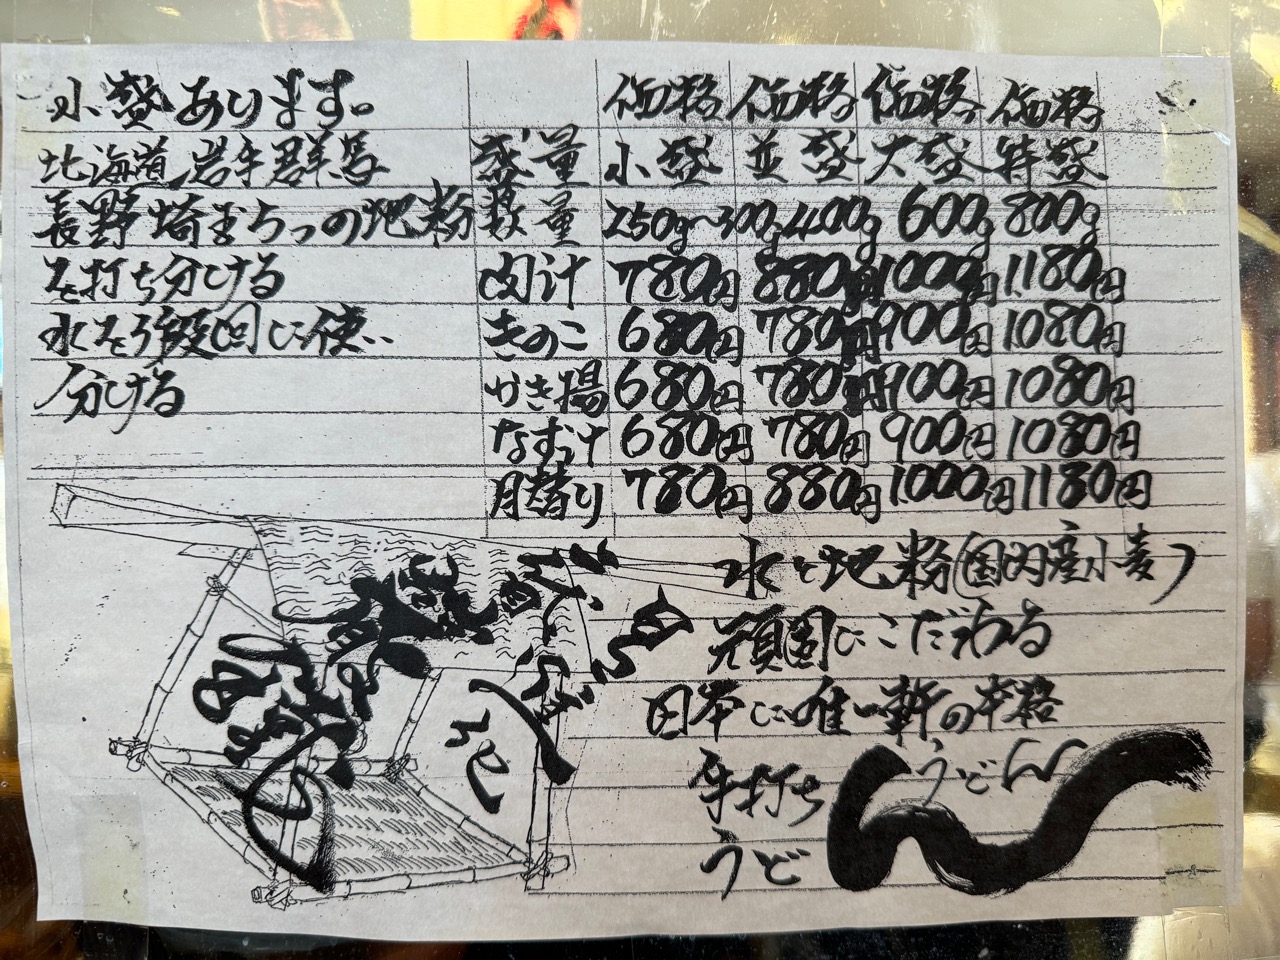 小盛あります。 価格 価格 価格 価格
北海道岩手群馬 盛量 小盛 並盛 大盛 特盛
長野埼玉らっの地粉 数量 250g~300g 400g 600g 800g
を打ち分ける 肉汁 780円 880円 1000円 1180円
水を3段回に使い きのこ 680円 780円 900円 1080円
分ける かき揚 680円 780円 900円 1080円
なすつけ 680円 780円 900円 1080円
月替り 780円 880円 1000円 1180円
水と地粉(国内産小麦)
頑固にこだわる
日本に唯一軒の本格
手打ち
うどん
うどん